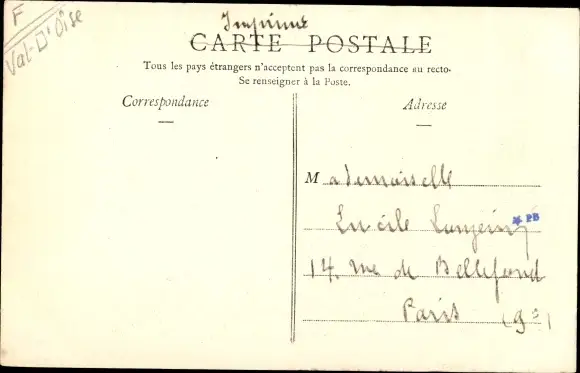 F
Val-D'Oise
Imprimé
CARTE POSTALE
Tous les pays étrangers n'acceptent pas la correspondance au recto-
Se renseigner à la Poste.
Correspondance
Adresse
Mademoiselle
Lucile
PB
14. rue de Bellefond
Paris (9e)